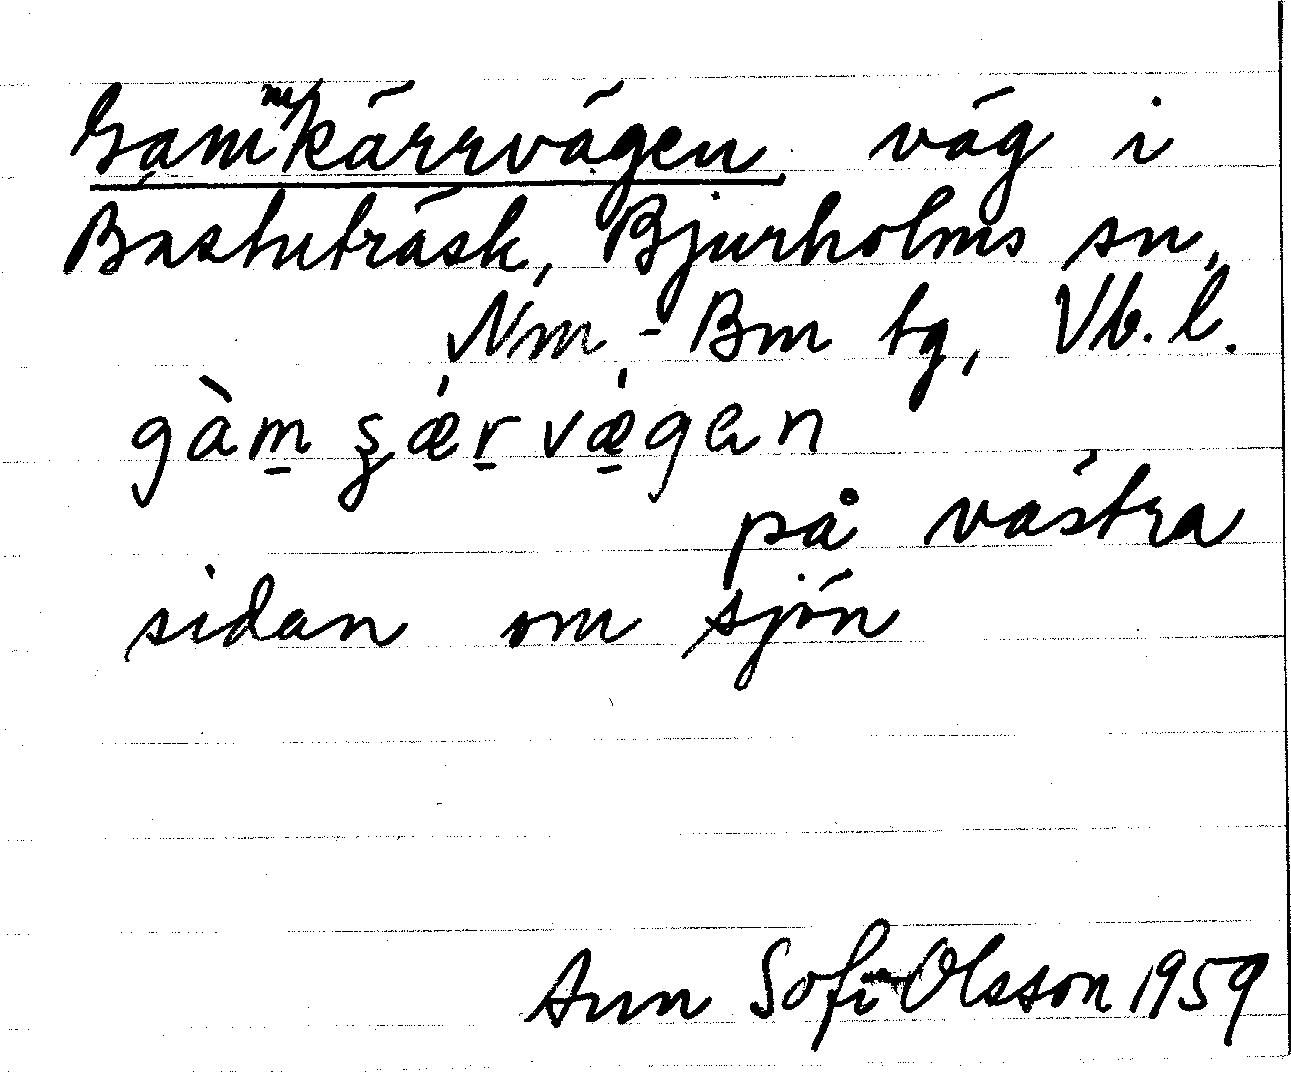 Gammkärrvägen, väg i
Bastuträsk, Bjurholms sn,
Nm - Bm tg, Vb. l.
gàm̱ ʂǽṟ vǽ̱gen
på västra
sidan om sjön
Ann Sofi Olsson 1959